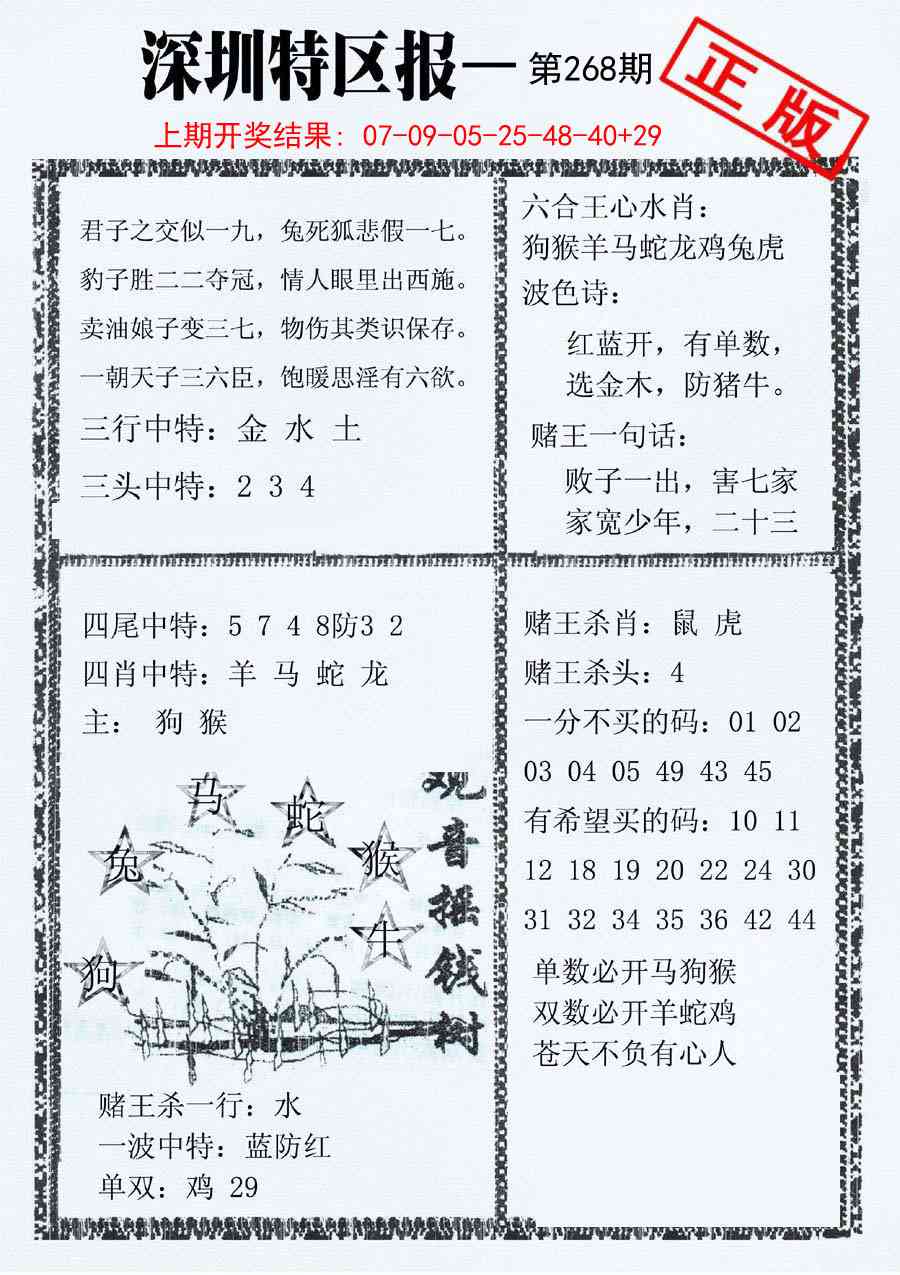 深圳特区报一 第268期
正版
上期开奖结果：07-09-05-25-48-40+29
君子之交似一九，兔死狐悲假一七。
豹子胜二二夺冠，情人眼里出西施。
卖油娘子变三七，物伤其类识保存。
一朝天子三六臣，饱暖思淫有六欲。
三行中特：金 水 土
三头中特：2 3 4
六合王心水肖：
狗猴羊马蛇龙鸡兔虎
波色诗：
红蓝开，有单数，
选金木，防猪牛。
赌王一句话：
败子一出，害七家
家宽少年，二十三
四尾中特：5 7 4 8防3 2
四肖中特：羊 马 蛇 龙
主： 狗 猴
马
蛇
兔
猴
牛
狗
观音摇钱树
赌王杀一行：水
一波中特：蓝防红
单双：鸡 29
赌王杀肖：鼠 虎
赌王杀头：4
一分不买的码：01 02
03 04 05 49 43 45
有希望买的码：10 11
12 18 19 20 22 24 30
31 32 34 35 36 42 44
单数必开马狗猴
双数必开羊蛇鸡
苍天不负有心人